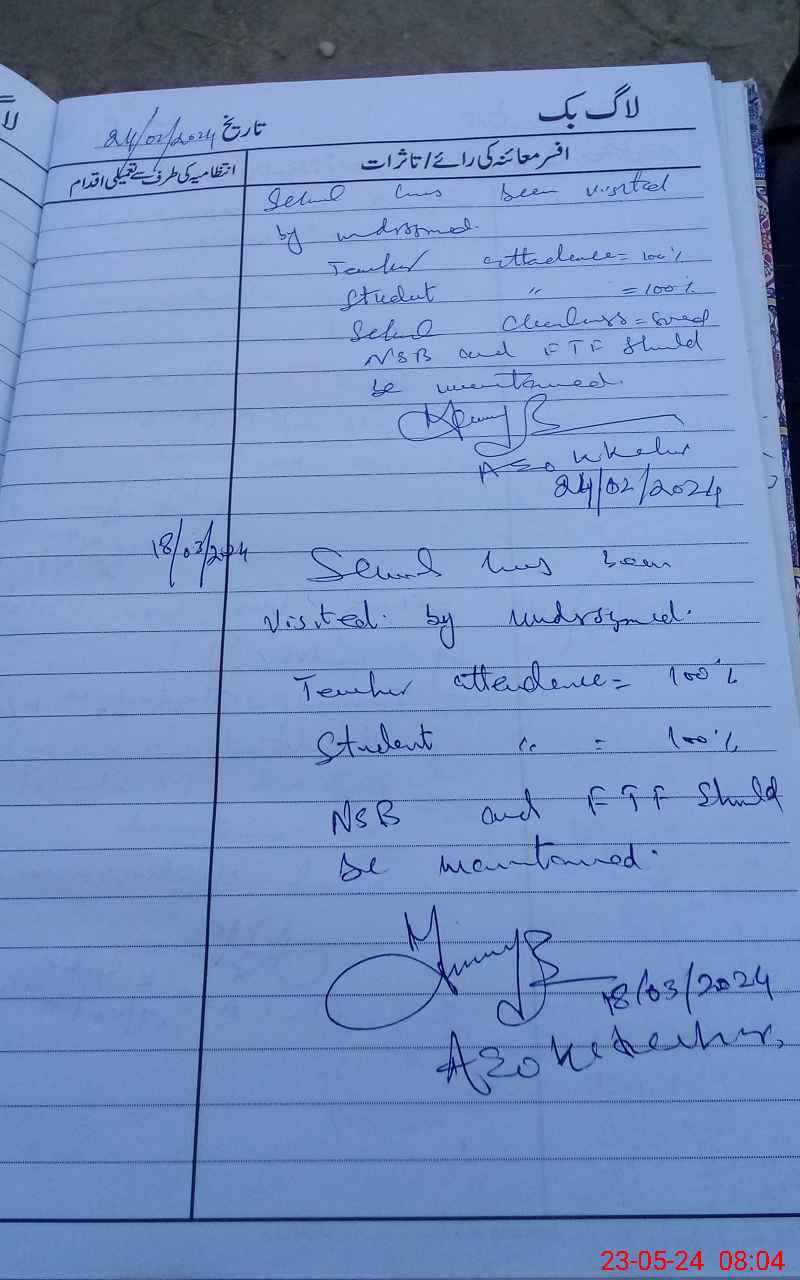 لاگ بک
تاریخ 24/02/2024
افسر معائنہ کی رائے / تاثرات
انتظامیہ کی طرف سے تعمیلی اقدام
School has been visited
by undrsigned.
Teacher attadence = 100%
Student " = 100%
School Cleanlness = Good
NSB and FTF Should
be maintained.
AEO
24/02/2024
18/03/2024
School has been
visited by undrsigned.
Teacher attendence = 100%
Student " = 100%
NSB and FTF Should
be maintained.
18/03/2024
AEO
23-05-24 08:04